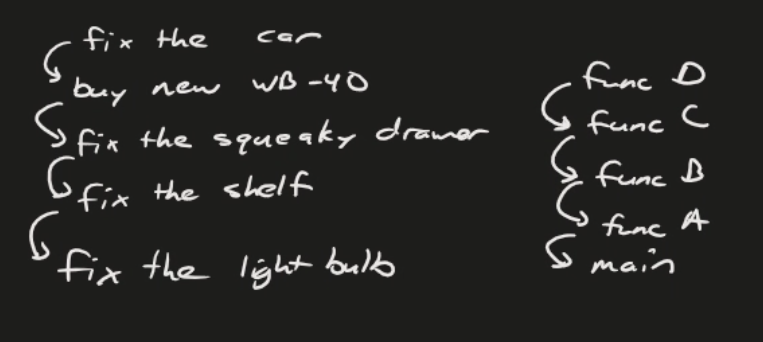 fix the car
buy new WB-40
fix the squeaky drawer
fix the shelf
fix the light bulb
func D
func C
func B
func A
main